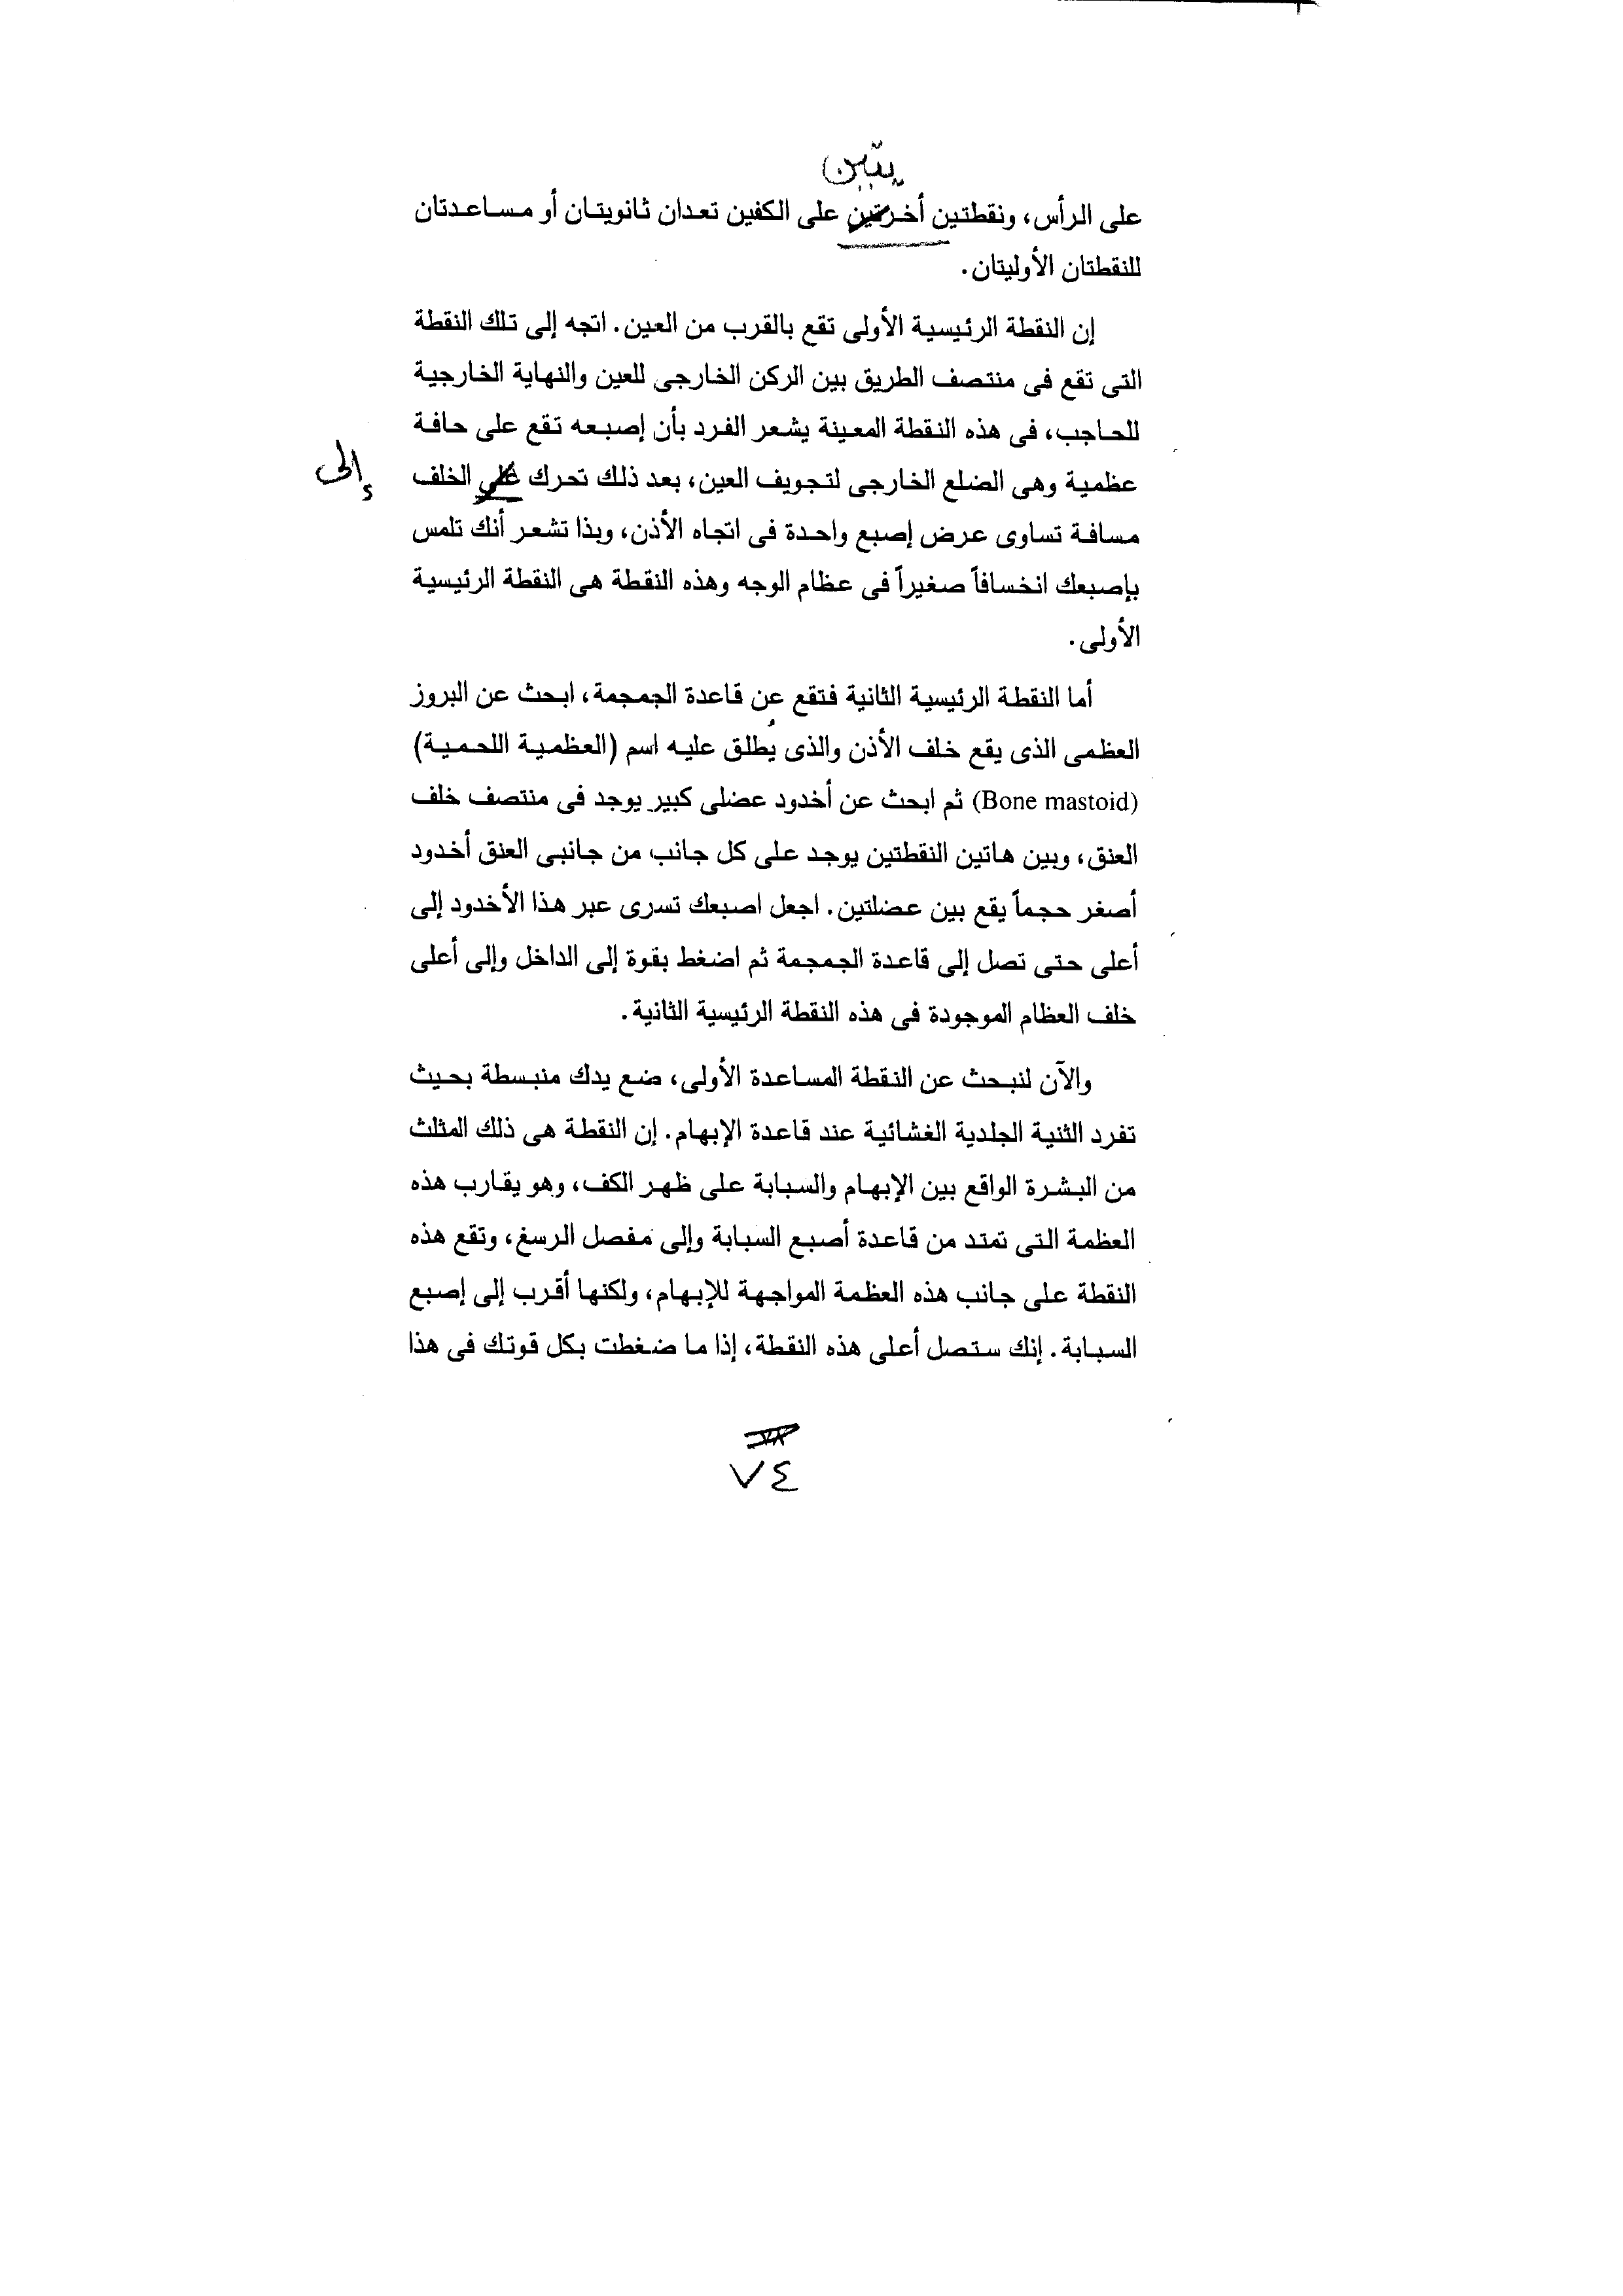 يتين
على الرأس، ونقطتين أخرتين على الكفين تعدان ثانويتان أو مساعدتان
للنقطتان الأوليتان.
إن النقطة الرئيسية الأولى تقع بالقرب من العين. اتجه إلى تلك النقطة
التى تقع فى منتصف الطريق بين الركن الخارجى للعين والنهاية الخارجية
للحاجب، فى هذه النقطة المعينة يشعر الفرد بأن إصبعه تقع على حافة
عظمية وهى الضلع الخارجى لتجويف العين، بعد ذلك تحرك على الخلف
إلى
مسافة تساوى عرض إصبع واحدة فى اتجاه الأذن، وبذا تشعر أنك تلمس
بإصبعك انخسافاً صغيراً فى عظام الوجه وهذه النقطة هى النقطة الرئيسية
الأولى.
أما النقطة الرئيسية الثانية فتقع عن قاعدة الجمجمة، ابحث عن البروز
العظمى الذى يقع خلف الأذن والذى يُطلق عليه اسم (العظمية اللحمية)
(Bone mastoid) ثم ابحث عن أخدود عضلى كبير يوجد فى منتصف خلف
العنق، وبين هاتين النقطتين يوجد على كل جانب من جانبى العنق أخدود
أصغر حجماً يقع بين عضلتين. اجعل اصبعك تسرى عبر هذا الأخدود إلى
أعلى حتى تصل إلى قاعدة الجمجمة ثم اضغط بقوة إلى الداخل وإلى أعلى
خلف العظام الموجودة فى هذه النقطة الرئيسية الثانية.
والآن لنبحث عن النقطة المساعدة الأولى، ضع يدك منبسطة بحيث
تفرد الثنية الجلدية الغشائية عند قاعدة الإبهام. إن النقطة هى ذلك المثلث
من البشرة الواقع بين الإبهام والسبابة على ظهر الكف، وهو يقارب هذه
العظمة التى تمتد من قاعدة أصبع السبابة وإلى مفصل الرسغ، وتقع هذه
النقطة على جانب هذه العظمة المواجهة للإبهام، ولكنها أقرب إلى إصبع
السبابة. إنك ستصل أعلى هذه النقطة، إذا ما ضغطت بكل قوتك فى هذا
٧٤